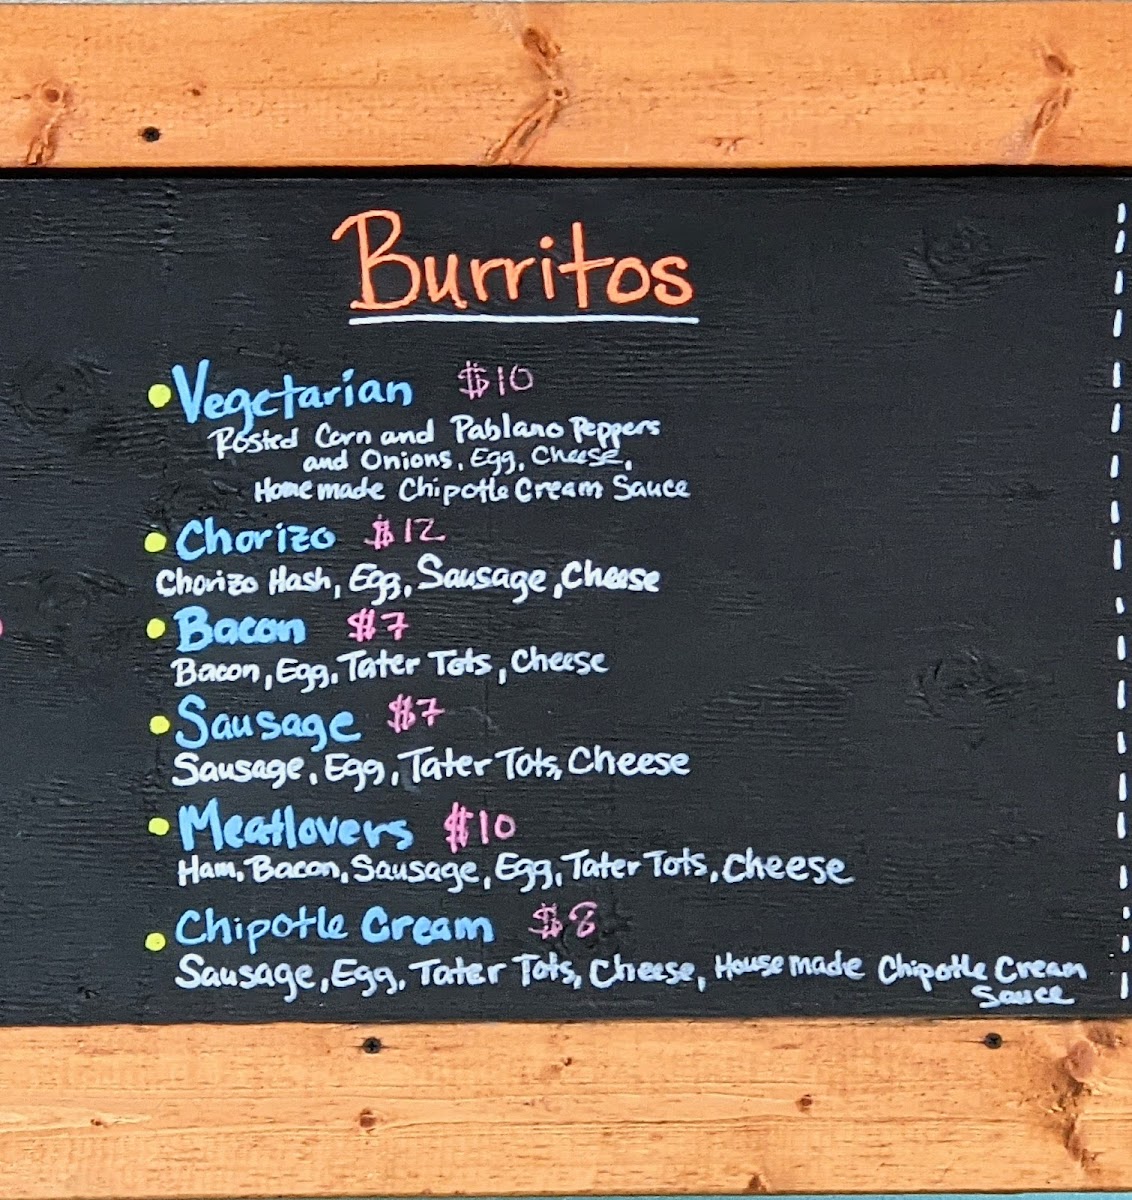 Burritos
Vegetarian $10
Rosted Corn and Pablano Peppers
and Onions, Egg, Cheese,
Home made Chipotle Cream Sauce
Chorizo $12
Chorizo Hash, Egg, Sausage, Cheese
Bacon $7
Bacon, Egg, Tater Tots, Cheese
Sausage $7
Sausage, Egg, Tater Tots, Cheese
Meatlovers $10
Ham, Bacon, Sausage, Egg, Tater Tots, Cheese
Chipotle Cream $8
Sausage, Egg, Tater Tots, Cheese, House made Chipotle Cream
Sauce